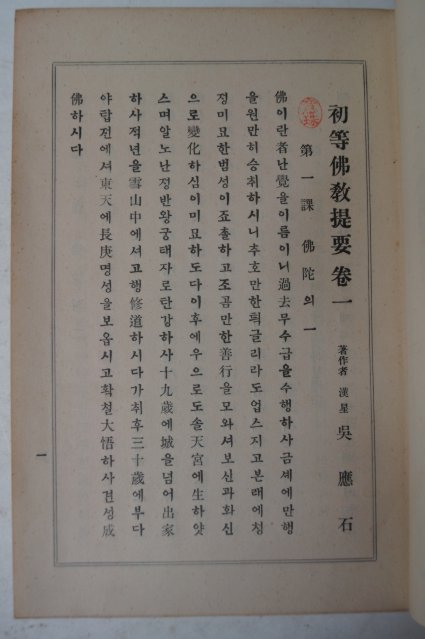 初等佛敎提要 卷一
著作者 漢星 吳應石
第一課 佛陀의 一
佛이란者난覺을이름이니過去무수급을수행하사금셰에만행
을원만히승취하시니추호만한획글리라도업스지고본래에쳥
졍미묘한법셩이죠촐하고조곰만한善行을모와셔보신과화신
으로變化하심이미묘하도다이후에우으로도솔天宮에生하얏
스며알노난졍반왕궁태자로탄강하사十九歲에城을넘어出家
하사젹년을雪山中에셔고行修道하시다가취후三十歲에부다
야탑젼에셔東天에長庚명셩을보옵시고확쳘大悟하사견셩成
佛하시다
一